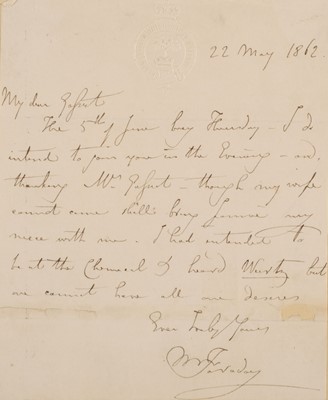 22 May 1862
My dear Gassiot
The 5th of June being Thursday - I do
intend to join you in the Evening - and
thanking Mrs Gassiot - though my wife
cannot come shall bring Jannie my
niece with me. I had intended to
be at the Chemical & heard Wurtz but
we cannot have all our desires
Ever Truly Yours
M Faraday